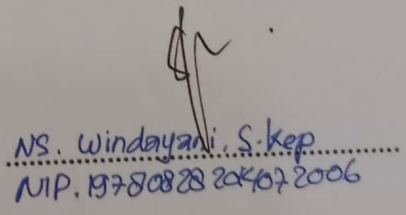 NS. Windayani, S.Kep
NIP. 19780828 201407 2006